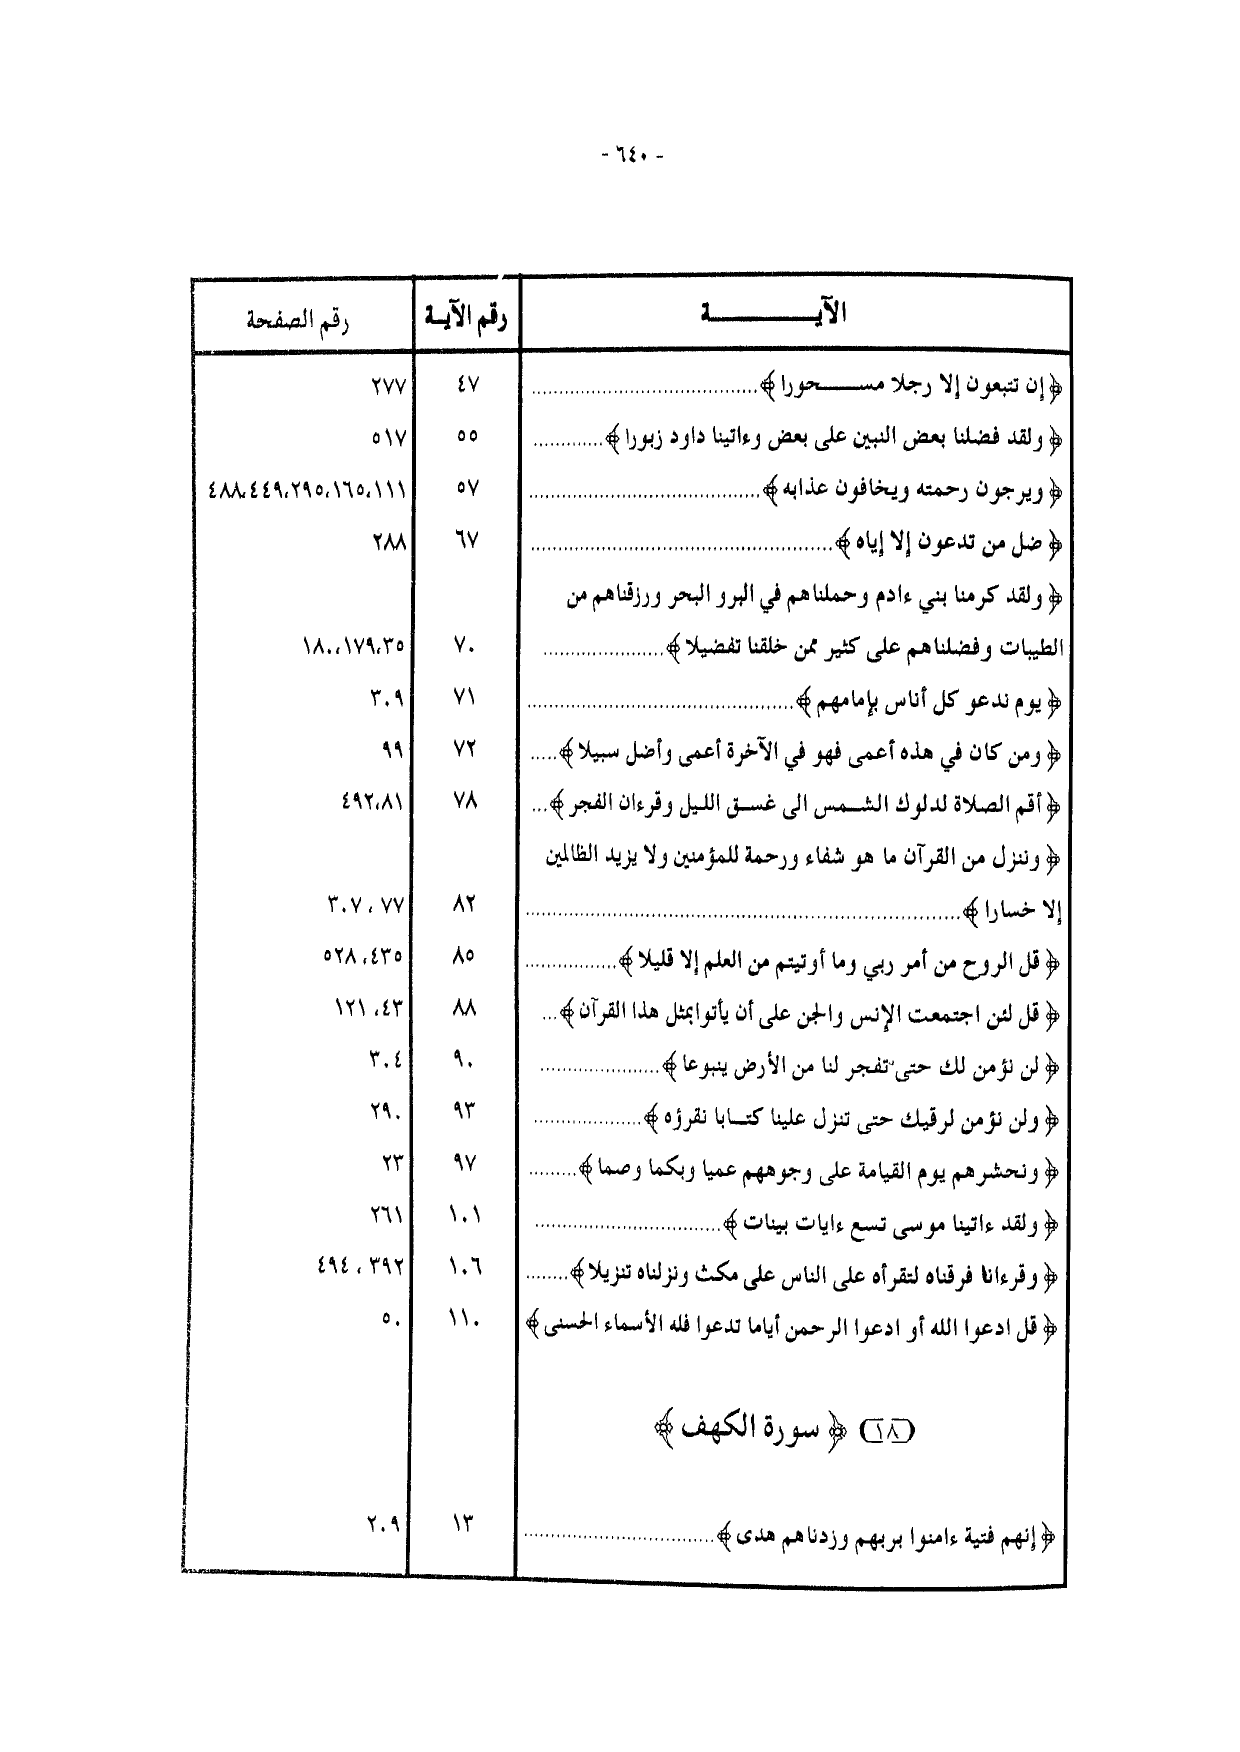 - ٦٤٠ -
الآيـــــــــة رقم الآيـة رقم الصفحة
﴿ إن تتبعون إلا رجلا مســـحورا ﴾ ........ ٤٧ ٢٧٧
﴿ ولقد فضلنا بعض النبين على بعض وءاتينا داود زبورا ﴾ ........ ٥٥ ٥١٧
﴿ ويرجون رحمته ويخافون عذابه ﴾ ........ ٥٧ ١١١،١٦٥،٢٩٥،٤٤٩،٤٨٨
﴿ ضل من تدعون إلا إياه ﴾ ........ ٦٧ ٢٨٨
﴿ ولقد كرمنا بني ءادم وحملناهم في البرو البحر ورزقناهم من
الطيبات وفضلناهم على كثير ممن خلقنا تفضيلا ﴾ ........ ٧٠ ٣٥،١٧٩،١٨٠
﴿ يوم ندعو كل أناس بإمامهم ﴾ ........ ٧١ ٣٠٩
﴿ ومن كان في هذه أعمى فهو في الآخرة أعمى وأضل سبيلا ﴾ ..... ٧٢ ٩٩
﴿ أقم الصلاة لدلوك الشـمس الى غسـق الليل وقرءان الفجر ﴾ ... ٧٨ ٨١،٤٩٢
﴿ وننزل من القرآن ما هو شفاء ورحمة للمؤمنين ولا يزيد الظالمين
إلا خسارا ﴾ ........ ٨٢ ٧٧ ، ٣٠٧
﴿ قل الروح من أمر ربي وما أوتيتم من العلم إلا قليلا ﴾ ........ ٨٥ ٤٣٥، ٥٢٨
﴿ قل لئن اجتمعت الإنس والجن على أن يأتوابمثل هذا القرآن ﴾ ... ٨٨ ٤٣، ١٢١
﴿ لن نؤمن لك حتى تفجر لنا من الأرض ينبوعا ﴾ ........ ٩٠ ٣٠٤
﴿ ولن نؤمن لرقيك حتى تنزل علينا كتـابا نقرؤه ﴾ ........ ٩٣ ٢٩٠
﴿ ونحشرهم يوم القيامة على وجوههم عميا وبكما وصما ﴾ ........ ٩٧ ٢٣
﴿ ولقد ءاتينا موسى تسع ءايات بينات ﴾ ........ ١٠١ ٢٦١
﴿ وقرءانا فرقناه لتقرأه على الناس على مكث ونزلناه تنزيلا ﴾ ........ ١٠٦ ٣٩٢ ، ٤٩٤
﴿ قل ادعوا الله أو ادعوا الرحمن أياما تدعوا فله الأسماء الحسنى ﴾ ١١٠ ٥٠
(١٨) ﴿ سورة الكهف ﴾
﴿ إنهم فتية ءامنوا بربهم وزدناهم هدى ﴾ ........ ١٣ ٢٠٩